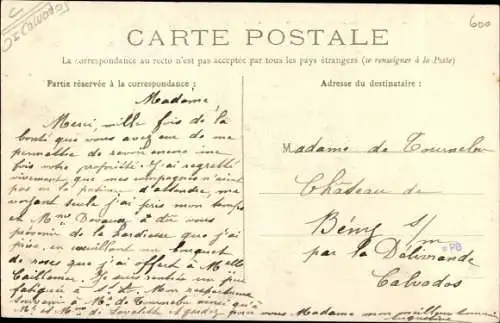 600
CARTE POSTALE
La correspondance au recto n'est pas acceptée par tous les pays étrangers (se renseigner à la Poste)
Partie réservée à la correspondance :
Adresse du destinataire :
Madame,
Merci, mille fois de la
bonté que vous avez eue de me
permettre de revoir encore une
fois votre propriété. J'ai regretté
vivement, que mes compagnes n'aient
pas eu la patience d'attendre, me
voyant seule j'ai pris mon temps
et Mme a dû vous
prévenir de la hardiesse que j'ai
prise, en cueillant un bouquet
de roses que j'ai offert à Melle
Je suis rentrée un peu
fatiguée à St. L. Mon respectueux
souvenir à Mr de Tournebu ainsi qu'à
Mr et Mme de et gardez pour vous Madame mon meilleur souvenir
Madame de Tournebu
Château de
Bény s/m
par la Délivrande
Calvados
PB